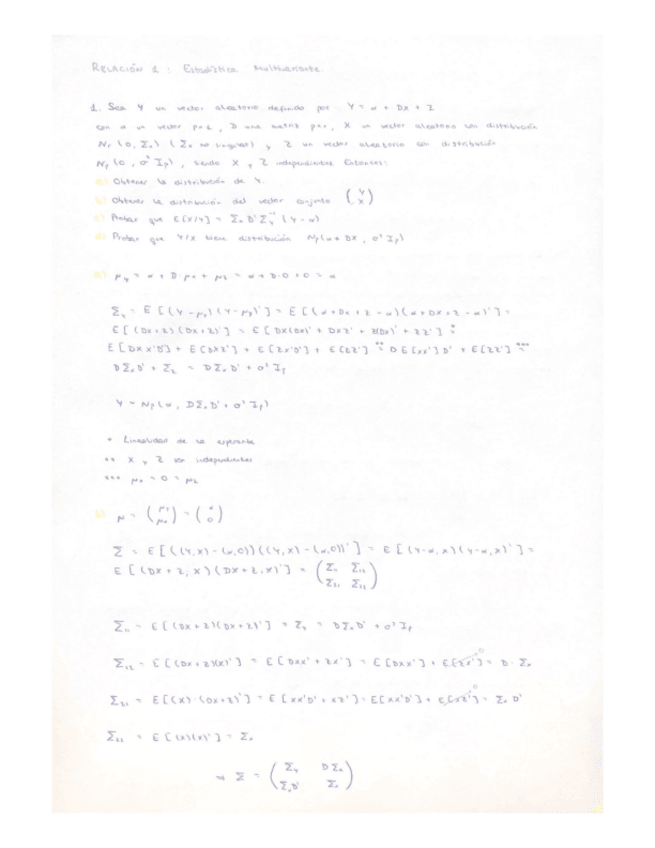 RELACIÓN 1 : Estadística Multivariante.
1. Sea Y un vector aleatorio definido por Y = α + DX + Z
con α un vector px1, D una matriz pxr, X un vector aleatorio con distribución
Nr (0, Σx) (Σx no singular) y Z un vector aleatorio con distribución
Np (0, σ² Ip), siendo X y Z independientes. Entonces:
a) Obtener la distribución de Y.
b) Obtener la distribución del vector conjunto (Y X)
c) Probar que E[X/Y] = Σx D' Σy⁻¹ (Y - α)
d) Probar que Y/X tiene distribución Np(α + DX, σ² Ip)
a) μy = α + D·μx + μz = α + D·0 + 0 = α
Σy = E [(Y - μy)(Y - μy)'] = E [(α + Dx + z - α)(α + Dx + z - α)'] =
E [(Dx + z)(Dx + z)'] = E [Dx(Dx)' + Dxz' + z(Dx)' + zz'] *=
E [Dxx'D'] + E [Dxz'] + E [zx'D'] + E [zz'] **= D E[xx'] D' + E[zz'] ***=
DΣxD' + Σz = DΣxD' + σ² Ip
Y ~ Np (α, DΣxD' + σ² Ip)
* Linealidad de la esperanza
** X y Z son independientes
*** μx = 0 = μz
b) μ = (μy μx) = (α 0)
Σ = E [((Y,X) - (α,0))((Y,X) - (α,0))'] = E [(Y-α, X)(Y-α, X)'] =
E [(DX + Z, X)(DX + Z, X)'] = (Σ11 Σ12 Σ21 Σ22)
Σ11 = E [(DX + Z)(DX + Z)'] = Σy = DΣxD' + σ² Ip
Σ12 = E [(DX + Z)(X)'] = E [DXX' + ZX'] = E [DXX'] + E[ZX'] 0 = D · Σx
Σ21 = E [(X)·(DX + Z)'] = E [XX'D' + XZ'] = E[XX'D'] + E[XZ'] 0 = Σx D'
Σ22 = E [(X)(X)'] = Σx
⇒ Σ = (Σy DΣx ΣxD' Σx)